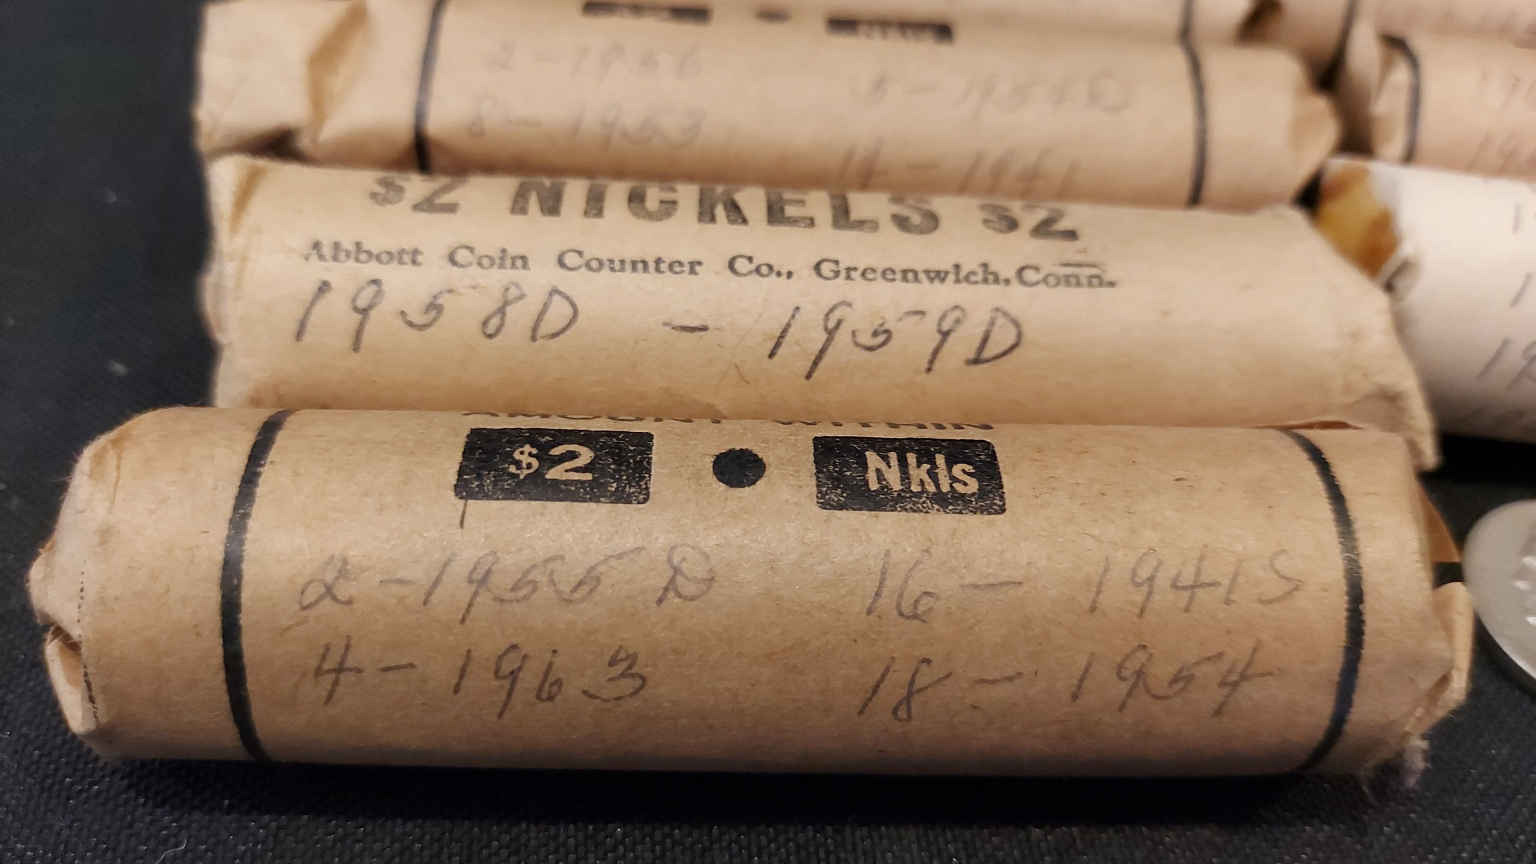 2-1956
8-1953
14-1941
$2 NICKELS $2
Abbott Coin Counter Co., Greenwich, Conn.
1958D - 1959D
AMOUNT WITHIN
$2 • Nkls
2-1955 D 16- 1941S
4-1963 18-1954